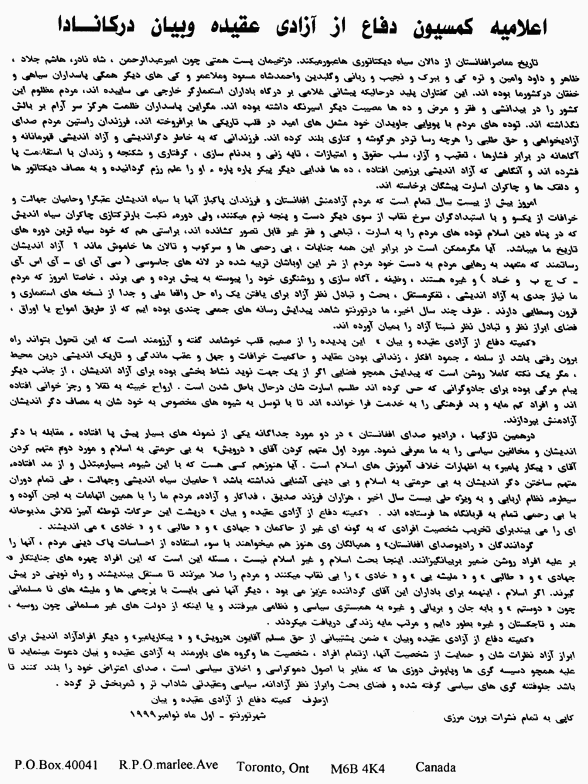 اعلامیه کمسیون دفاع از آزادی عقیده وبیان درکانادا
تاریخ معاصرافغانستان از دالان سیاه دیکتاتوری هاعبورمیکند. درخیمان پست همتی چون امیرعبدالرحمن ، شاه نادر، هاشم جلاد ،
ظاهر و داود وامین و تره کی و ببرک و نجیب و ربانی وگلبدین واحمدشاه مسعود وملاعمر و کی های دیگر همگی پاسداران سیاهی و
خفقان درکشورما بوده اند. این کفتاران پلید درحالیکه پیشانی غلامی بر درگاه باداران استعمارگر خارجی می ساییده اند، مردم مظلوم این
کشور را در بیدانشی و فقر و مرض و ده ها مصیبت دیگر اسیرنگه داشته بوده اند. مگراین پاسداران ظلمت هرگز سر آرام بر بالش
نگذاشته اند. توده های مردم با پویایی جاویدان خود مشعل های امید در قلب تاریکی ها برافروخته اند، فرزندان راستین مردم صدای
آزادیخواهی و حق طلبی را هرچه رسا تردر هرگوشه و کناری بلند کرده اند. فرزندانی که به خاطر دگراندیشی و آزاد اندیشی قهرمانانه و
آگاهانه در برابر فشارها ، تعقیب و آزار، سلب حقوق و امتیازات ، تاپه زنی و بدنام سازی ، گرفتاری و شکنجه و زندان با استقامت پا
فشرده اند و آنگاهی که آزاد اندیشی برزمین افتاده ، ده ها فدایی دیگر پیکر پاره پاره ء او را علم رزم گردانیده و به مصاف دیکتاتور ها
و دلقک ها و چاکران اسارت پیشگان برخاسته اند.
امروز بیش از بیست سال تمام است که مردم آزادمنش افغانستان و فرزندان پاکباز آنها با سیاه اندیشان عقبگرا وحامیان جهالت و
خرافات از یکسو و با استبدادگران سرخ نقاب از سوی دیگر دست و پنجه نرم میکنند، ولی دورهء نکبت بارترکتازی چاکران سیاه اندیش
که در پناه دین اسلام توده های مردم را به اسارت ، تباهی و فقر غیر قابل تصور کشانده اند، براستی هم که خود سیاه ترین دوره های
تاریخ ما میباشد. آیا مگرممکن است در برابر این همه جنایات ، بی رحمی ها و سرکوب و تالان ها خاموش ماند ؟ آزاد اندیشان
رسالتمند که متعهد به رهایی مردم به دست خود مردم از شر این اوباشان تربیه شده در لانه های جاسوسی ( سی آی ای ـ آی اس آی
ـ ک ج ب و خاد ) و غیره هستند ، وظیفهء آگاه سازی و روشنگری خود را پیوسته به پیش برده و می برند ، خاصتا امروز که مردم
ما نیاز جدی به آزاد اندیشی ، تفکرمستقل ، بحث و تبادل نظر آزاد برای یافتن یک راه حل واقعا ملی و جدا از نسخه های استعماری و
قرون وسطایی دارند . ظرف چند سال اخیر، ما درتورنتو شاهد پیدایش رسانه های جمعی چندی بوده ایم که از طریق امواج یا اوراق ،
فضای ابراز نظر و تبادل نظر نسبتا آزاد را بمیان آورده اند.
«کمیته دفاع از آزادی عقیده و بیان » این پدیده را از صمیم قلب خوشامد گفته و آرزومند است که این تحول بتواند راه
برون رفتی باشد از سلطهء جمود افکار ، زندانی بودن عقاید و حاکمیت خرافات و جهل و عقب ماندگی و تاریک اندیشی درین محیط
، مگر یک نکته کاملا روشن است که پیدایش همچو فضایی اگر از یک جهت نوید نشاط بخشی بوده برای آزاد اندیشان ، از جانب دیگر
پیام مرگی بوده برای جادوگرانی که حس کرده اند طلسم اسارت شان درحال باطل شدن است . ارواح خبیثه به تقلا و رجز خوانی افتاده
اند و افراد کم مایه و بد فرهنگی را به خدمت فرا خوانده اند تا با توسل به شیوه های مخصوص به خود شان به مصاف دگر اندیشان
آزادمنش بپردازند.
درهمین تازگیها ، «رادیو صدای افغانستان » در دو مورد جداگانه یکی از نمونه های بسیار پیش پا افتاده ء مقابله با دگر
اندیشان و مخالفین سیاسی را به ما معرفی نمود. مورد اول متهم کردن آقای «درویش» به بی حرمتی به اسلام و مورد دوم متهم کردن
آقای « پیکار پامیر» به اظهارات خلاف آموزش های اسلام است . آیا هنوزهم کسی هست که با این شیوهء بسیارمبتذل و از مد افتادهء
متهم ساختن دگر اندیشان به بی حرمتی به اسلام و بی دینی آشنایی نداشته باشد ؟ حامیان سیاه اندیشی وجهالت ، طی تمام دوران
سیطرهء نظام اربابی و به ویژه طی بیست سال اخیر ، هزاران فرزند صدیق ، فداکار و آزادهء مردم ما را با همین اتهامات به لجن آلوده و
با بی رحمی تمام به قربانگاه ها فرستاده اند . «کمیته دفاع از آزادی عقیده و بیان » درپشت این حرکات توطئه آمیز تلاش مذبوحانه
ای را می بیندبرای تخریب شخصیت افرادی که به گونه ای غیر از حاکمان « جهادی » و « طالبی » و « خادی » می اندیشند .
گردانندگان « رادیوصدای افغانستان» و همپالگان وی هنوز هم میخواهند با سوء استفاده از احساسات پاک دینی مردم ، آنها را
بر علیه افراد روشن ضمیر بریبانگیزانند. اینجا بحث اسلام و غیر اسلام نیست ، مسئله این است که این افراد چهره های جنایتکار «
جهادی » و « طالبی » و « ملیشه یی » و « خادی » را بی نقاب میکنند و مردم را صلا میزنند تا مستقل بیندیشند و راه نوینی در پیش
گیرند. اگر اسلام ، اینهمه برای باداران این آقای گرداننده عزیز می بود ، دیگر آنها نمی بایست با پرچمی ها و ملیشه های نا مسلمانی
چون « دوستم » و « بابه جان و بریالی و غیره به همبستری سیاسی و نظامی میرفتند و یا اینکه از دولت های غیر مسلمانی چون روسیه ،
هند و تاجکستان و غیره بطور دایم و مرتب مایه زندگی دریافت میکردند.
«کمیته دفاع از آزادی عقیده وبیان » ضمن پشتیبانی از حق مسلم آقایون «درویش» و « پیکارپامیر» و دیگر افرادآزاد اندیش برای
ابراز آزاد نظرات شان و حمایت از شخصیت آنها، ازتمام افراد ، شخصیت ها وگروه های باورمند به آزادی عقیده و بیان دعوت مینماید تا
علیه همچو دسیسه گری ها وپاپوش دوزی ها که مغایر با اصول دموکراسی و اخلاق سیاسی است ، صدای اعتراض خود را بلند کنند تا
باشد جلوفتنه گری های سیاسی گرفته شده و فضای بحث وابراز نظر آزادانهء سیاسی وعقیدتی شاداب تر و ثمربخش تر گردد .
ازطرف کمیته دفاع از آزادی عقیده و بیان
کاپی به تمام نشرات برون مرزی
شهرتورنتو - اول ماه نوامبر ۱۹۹۹
P.O.Box.40041 R.P.O.marlee.Ave Toronto, Ont M6B 4K4 Canada